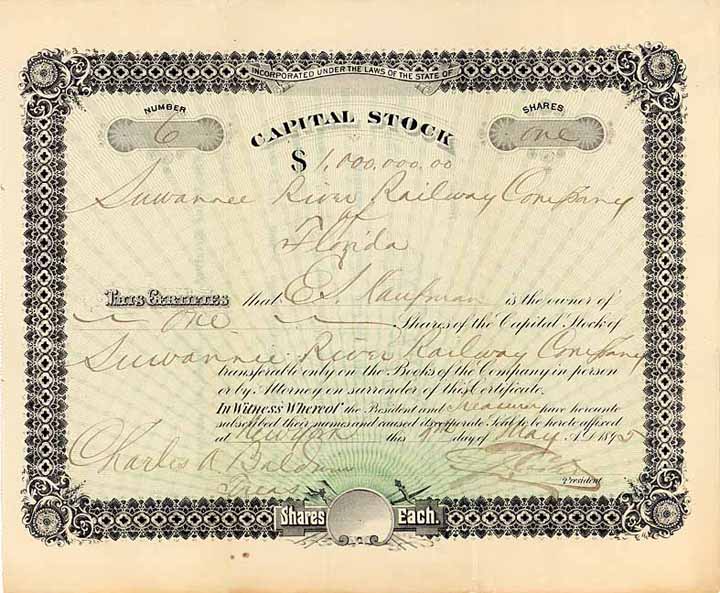 INCORPORATED UNDER THE LAWS OF THE STATE OF
NUMBER
6
SHARES
one
CAPITAL STOCK
$ 1,000,000.00
Suwannee River Railway Company
of
Florida
This Certifies that E.S. Kaufman is the owner of
one Shares of the Capital Stock of
Suwannee River Railway Company
transferable only on the Books of the Company in person
or by Attorney on surrender of this Certificate.
In Witness Whereof the President and Treasurer have hereunto
subscribed their names and caused its corporate Seal to be hereto affixed
at New York this 9th day of May A.D. 1895
Charles A. Baldwin
President
Shares Each.